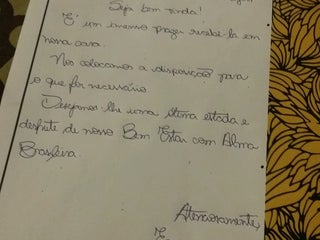 Seja bem vinda!
É um imenso prazer recebê-la em
nossa casa.
Nos colocamos a disposição para
o que for necessário.
Desejamos lhe uma ótima estada e
desfrute de nosso Bem Estar com Alma
Brasileira.
Atenciosamente,